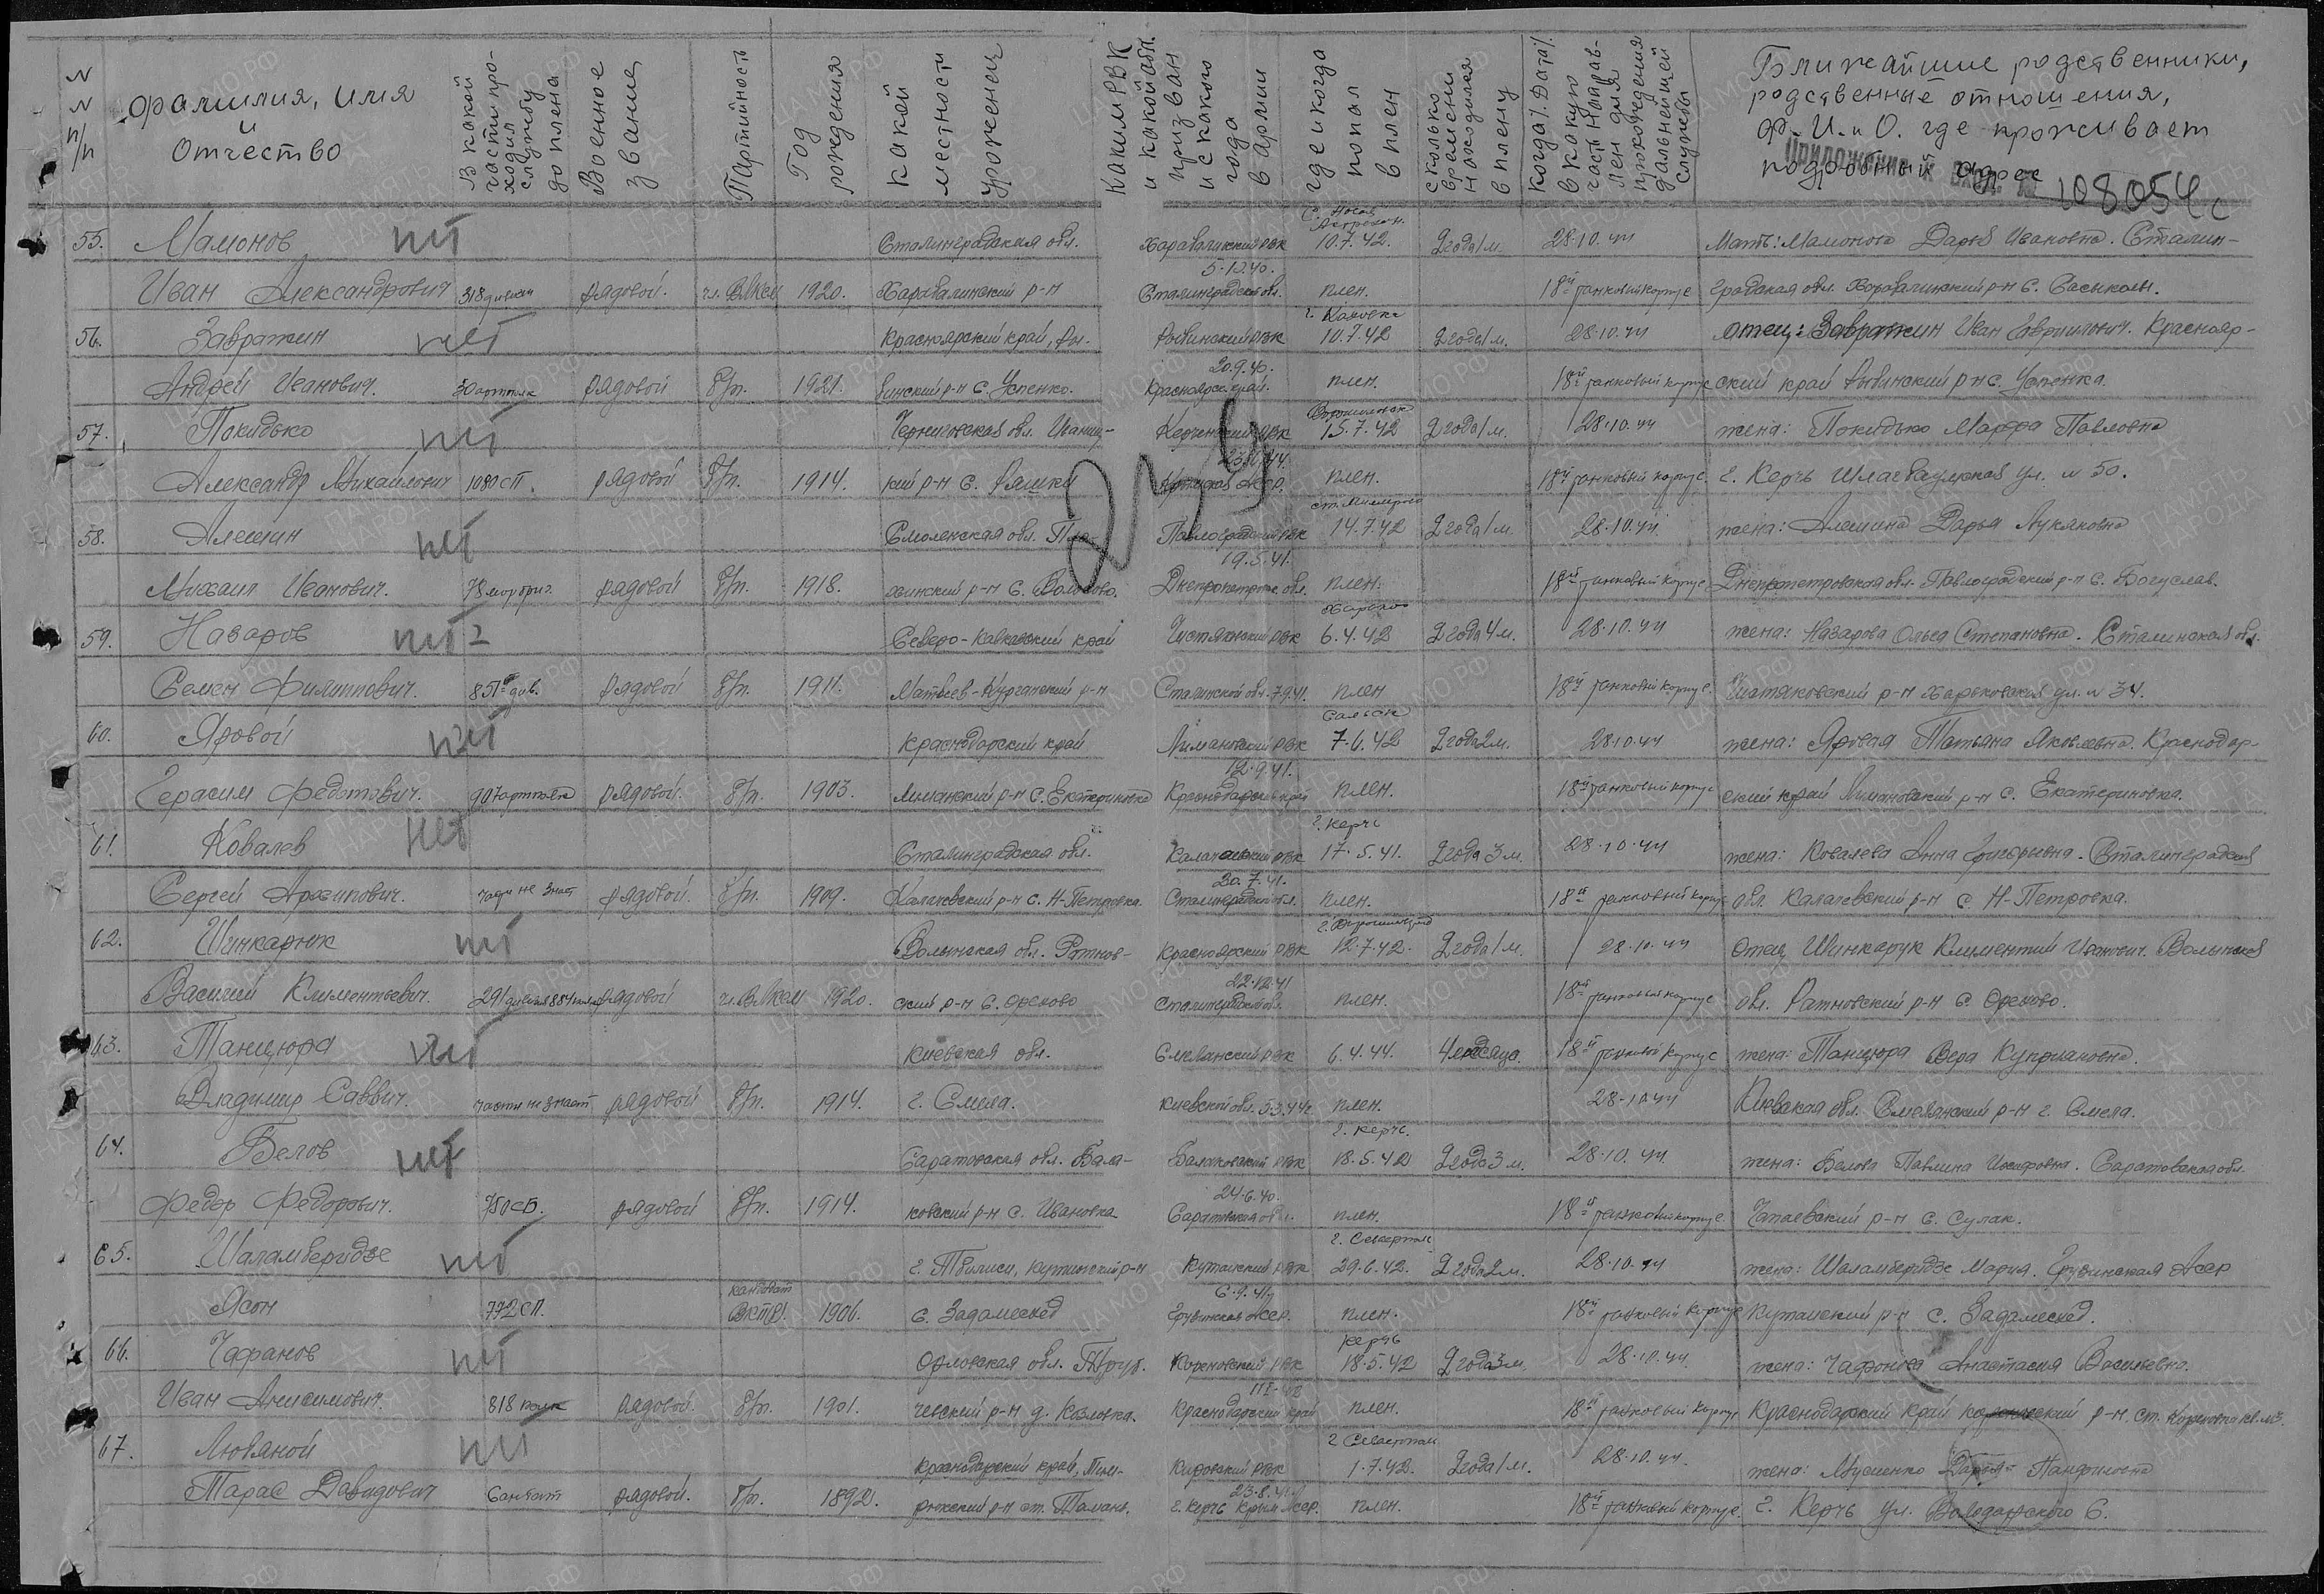 N N п/п
Фамилия, имя и Отчество
В какой части проходил службу до плена
Военное звание
Партийность
Год рождения
Какой местности уроженец
Каким РВК и какой обл. призван и с какого года в армии
Где и когда попал в плен
Сколько времени находился в плену
Когда /Дата/ в какую часть направлен для прохождения дальнейшей службы
Ближайшие родственники, родственные отношения, Ф.И. и О. где проживает подробный адрес
Приложение к вход. № 108054с
55. Мамонов нет Сталинградская обл. Харабалинский РВК 10.7.42. 2 года 1 м. 28.10.44 Мать: Мамонова Дарья Ивановна. Сталин-
Иван Александрович 318 дивизия рядовой. чл. ВЛКСМ 1920. Харабалинский р-н 5.10.40. Сталинградской обл. плен. 18й танковый корпус градская обл. Харабалинский р-н с. Сасыколи.
56. Завражин нет Красноярский край, Ры- Рыбинский РВК 10.7.42 2 года 1 м. 28.10.44 отец: Завражин Иван Гаврилович. Краснояр-
Андрей Иванович. 30 артполк рядовой б/п. 1921. бинский р-н с. Успенко. 20.9.40. Красноярск. край. плен. 18й танковый корпус ский край Рыбинский р-н с. Успенка.
57. Покидько нет Черниговская обл. Ичниц- Керченский РВК 15.7.42 2 года 1 м. 28.10.44 жена: Покидько Марфа Павловна
Александр Михайлович 1080 СП. рядовой б/п. 1914. кий р-н с. Ряшки Крымская АССР. плен. 18й танковый корпус г. Керчь ул. № 50.
58. Алешин нет Смоленская обл. Павлоградский РВК 14.7.42 2 года 1 м. 28.10.44 жена: Алешина Дарья Лукяновна
Михаил Иванович. 78 мор бриг. рядовой б/п. 1918. р-н с. 19.5.41. Днепропетровск обл. плен. 18й танковый корпус Днепропетровская обл. Павлоградский р-н с. Богуслав.
59. Назаров нет 2 Северо-Кавказский край Чистяковский РВК Харьков 6.4.42 2 года 4 м. 28.10.44 жена: Назарова Ольга Степановна. Сталинская обл.
Семен Филиппович. 851й див. рядовой б/п. 1911. Матвеев-Курганский р-н Сталинской обл. 7.9.41. плен 18й танковый корпус. Чистяковский р-н Харьковская ул. № 34.
60. Яровой нет Краснодарский край Лиманский РВК Сальск 7.6.42 2 года 2 м. 28.10.44 жена: Яровая Татьяна Яковлевна. Краснодар-
Герасим Федотович. 907 артполк рядовой. б/п. 1903. Лиманский р-н с. Екатериновка 12.9.41. Краснодарский край плен. 18й танковый корпус ский край Лимановский р-н с. Екатериновка.
61. Ковалев нет Сталинградская обл. Калачевский РВК г. Керчь 17.5.41. 2 года 3 м. 28.10.44 жена: Ковалева Анна Григорьевна. Сталинградская
Сергей Архипович. части не знает рядовой. б/п. 1909. Калачевский р-н с. Н-Петровка. 20.7.41. Сталинградской обл. плен. 18й танковый корпус обл. Калачевский р-н с. Н-Петровка.
62. Шинкарюк нет Волынская обл. Ратнов- Красноярский РВК 12.7.42. 2 года 1 м. 28.10.44 отец Шинкарук Климентий Иванович. Волынская
Василий Климентьевич. 291 дивизия 884 полк рядовой чл. ВЛКСМ 1920. ский р-н с. Орехово 22.12.41 Сталинградской обл. плен. 18й танковый корпус обл. Ратновский р-н с. Орехово.
63. Танцюра нет Киевская обл. Смелянский РВК 6.4.44. 4 месяца. 18й танковый корпус жена: Танцюра Вера Куприяновна.
Владимир Саввич. части не знает рядовой б/п. 1914. г. Смела. Киевской обл. 5.3.44г. плен. 28.10.44 Киевская обл. Смелянский р-н г. Смела.
64. Белов нет Саратовская обл. Бала- Балаковский РВК г. Керчь. 18.5.42 2 года 3 м. 28.10.44. жена: Белова Павлина. Саратовская обл.
Федор Федорович. 750 СБ. рядовой б/п. 1914. ковский р-н с. Ивановка 24.6.40. Саратовская обл. плен. 18й танковый корпус. Чапаевский р-н с. Сулак.
65. Шаламберидзе нет г. Тбилиси, Кутаиский р-н Кутаиский РВК г. Севастополь 29.6.42. 2 года 2 м. 28.10.44 жена: Шаламберидзе Мария. Грузинская АССР
Ясон 772 СП. кандидат ВКП(б). 1906. с. Задамескед 6.9.41г. Грузинская АССР. плен. 18й танковый корпус Кутаиский р-н с. Задамескед.
66. Чафанов нет Орловская обл. Труб. Кореновский РВК Керчь 18.5.42 2 года 3 м. 28.10.44. жена: Чафонова Анастасия Васильевна.
Иван Анисимович. 818 полк рядовой. б/п. 1901. чевский р-н д. Козловка. Краснодарский край плен. 18й танковый корпус Краснодарский край кореновский р-н. ст.
67. Любяной нет Краснодарский край, Тем- Кировский РВК г. Севастополь 1.7.42. 2 года 1 м. 28.10.44. жена: Мусиенко Дарья
Тарас Давидович Санбат рядовой. б/п. 1892. рюкский р-н ст. Тамань. 23.8.41. г. Керчь Крым АССР. плен. 18й танковый корпус. г. Керчь ул. Володарского 6.